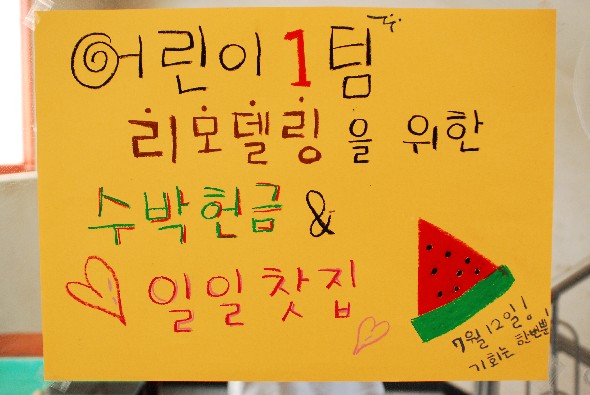 어린이 1팀
리모델링을 위한
수박헌금 &
일일찻집
7월 12일!
기회는 한번뿐!